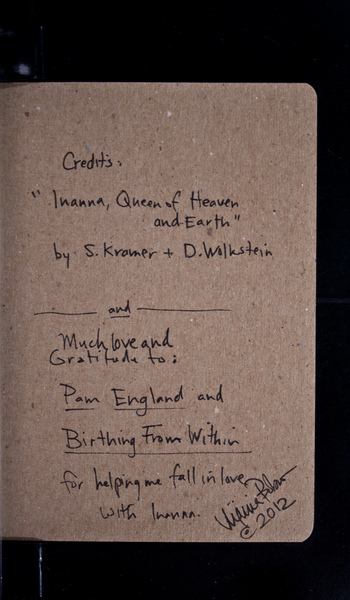 Credits:
"Inanna, Queen of Heaven
and Earth"
by S. Kramer + D. Wolkstein
and
Much love and
Gratitude to:
Pam England and
Birthing From Within
for helping me fall in love
with Inanna.
Virginia
© 2012